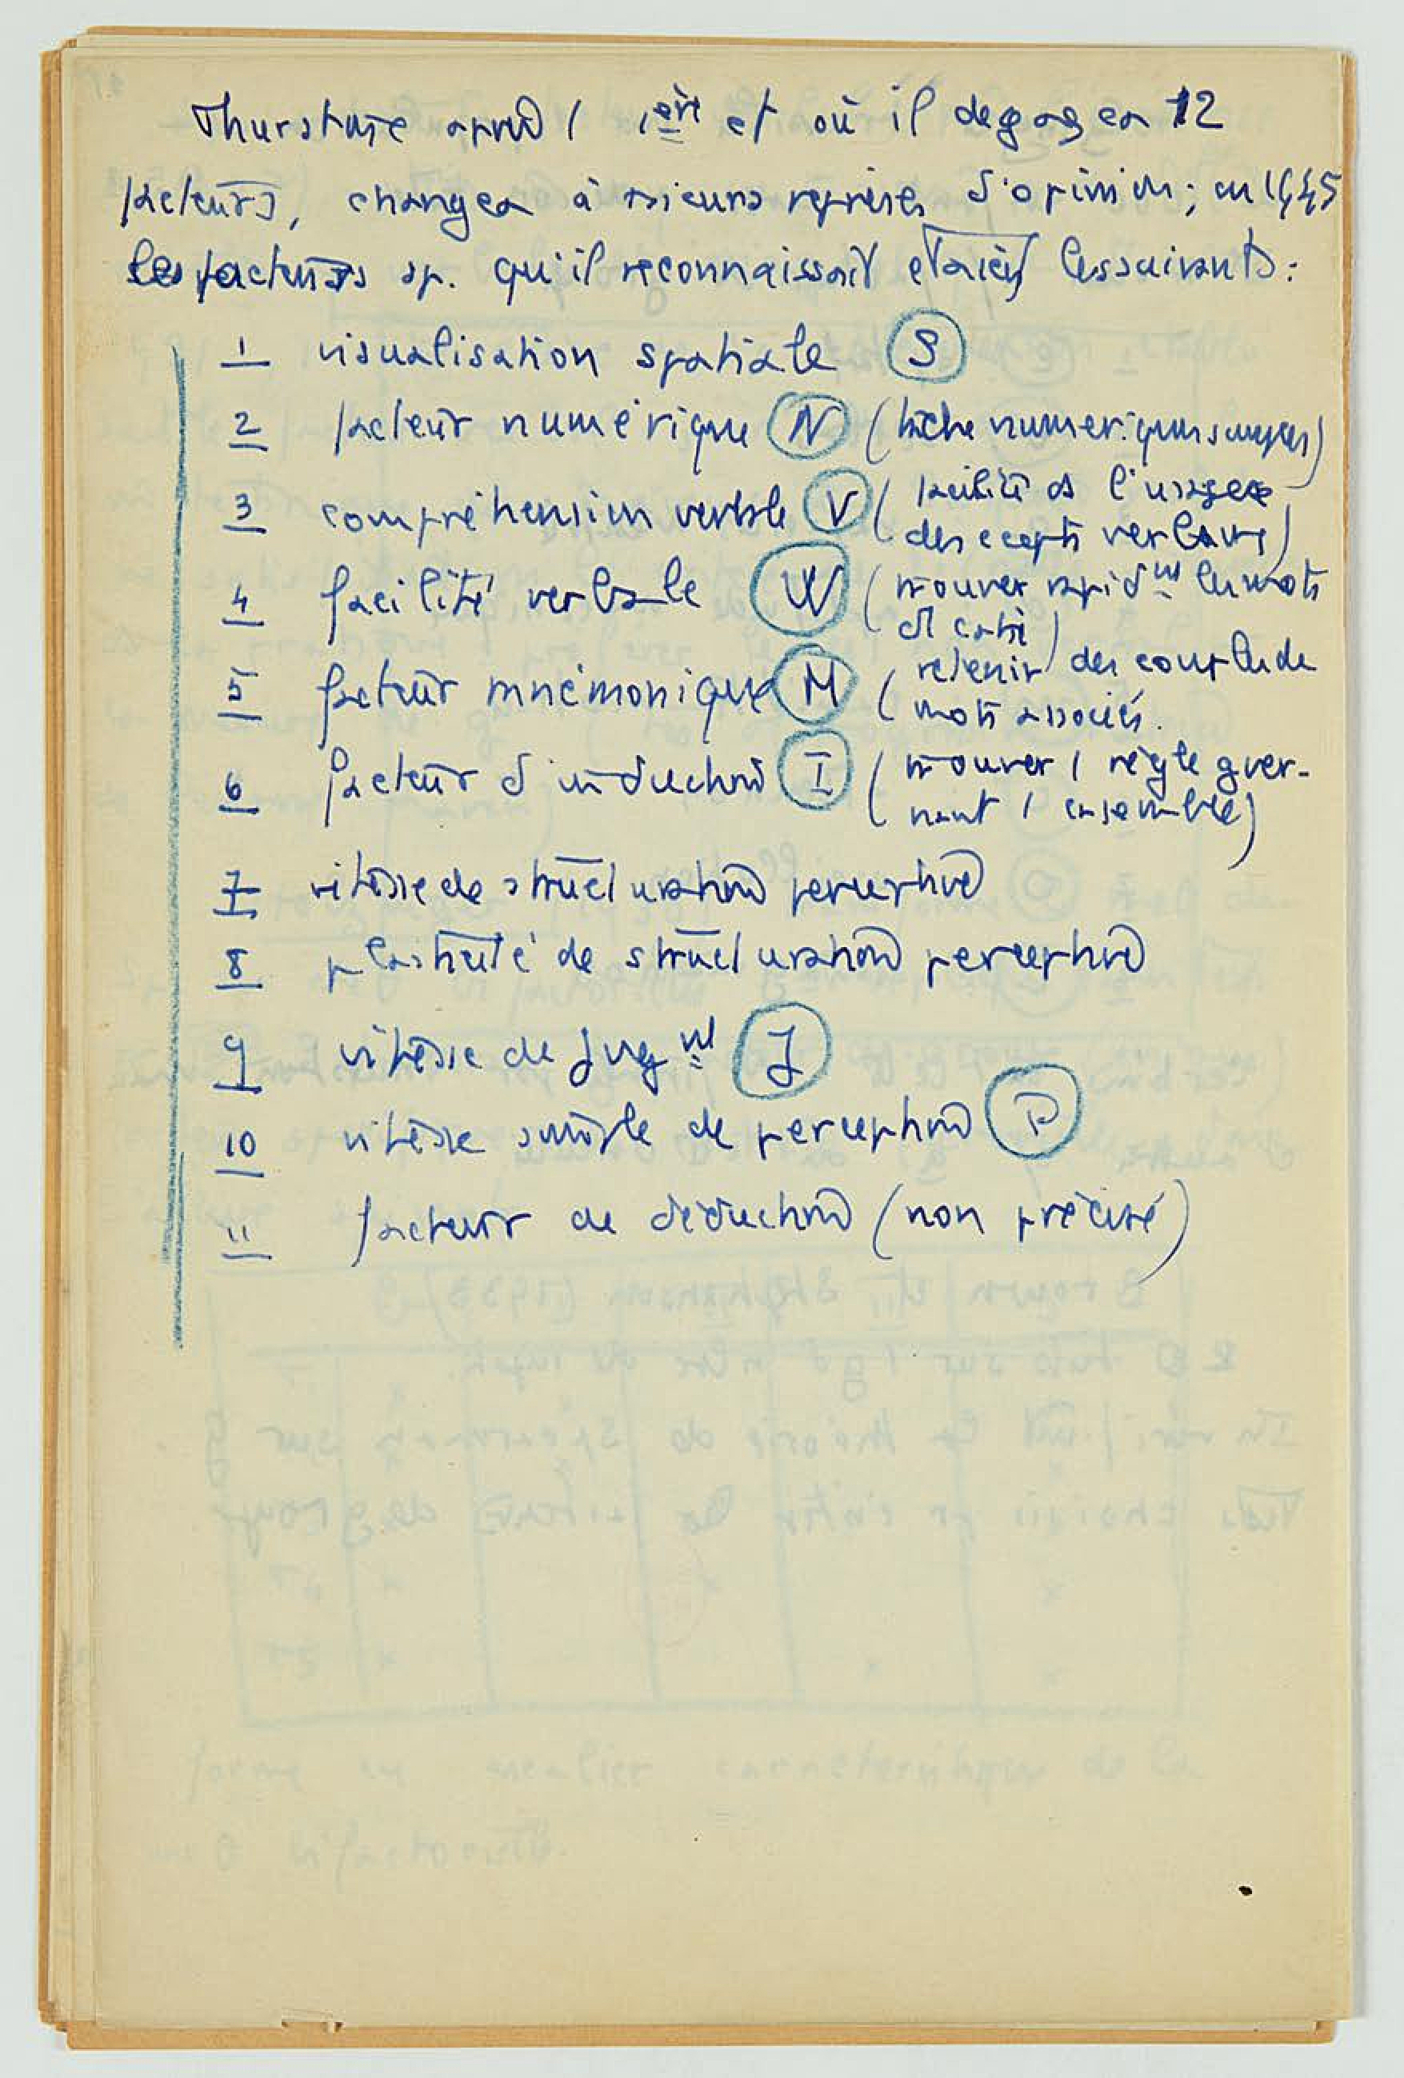 Thurstone après 1 1ère et où il dégagea 12
facteurs, changea à rsieurs reprises d'opinion; en 1945
les facteurs sp. qu'il reconnaissait étaient les suivants:
1 visualisation spatiale S
2 facteur numérique N (tâche numériques simples)
3 compréhension verbale V (facilité ds l'usage
des cepts verbaux)
4 facilité verbale W (trouver rapidnt les mots
)
5 facteur mnémonique M (retenir des couples de
mots associés.
6 facteur d'induction I (trouver l règle gver-
nant l ensemble)
7 vitesse de structuration perceptive
8 plasticité de structuration perceptive
9 vitesse de jugnt J
10 vitesse simple de perception P
11 facteur de déduction (non précisé)